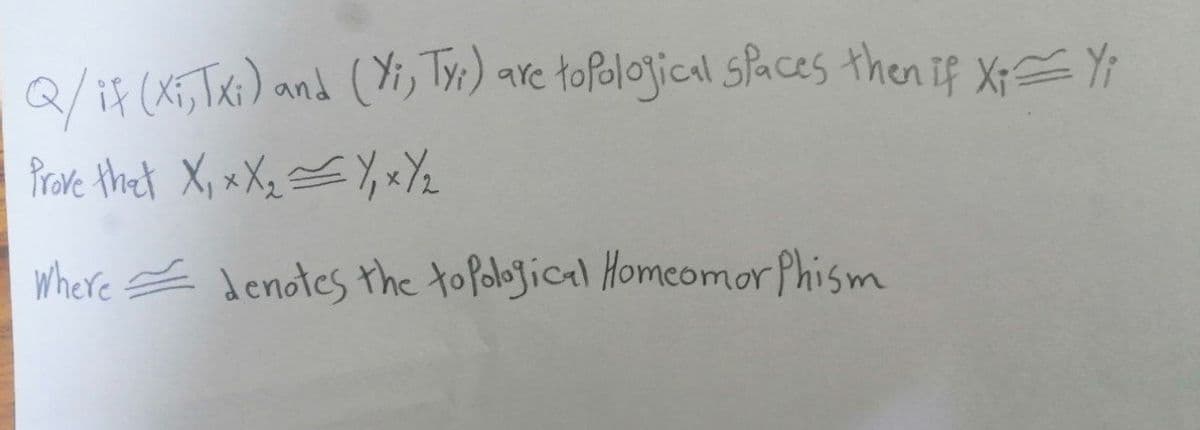 Q/ if (Xi, TXi) and (Yi, TYi) are topological spaces then if Xi ≅ Yi
Prove that X₁ × X₂ ≅ Y₁ × Y₂
Where ≅ denotes the topological Homeomorphism